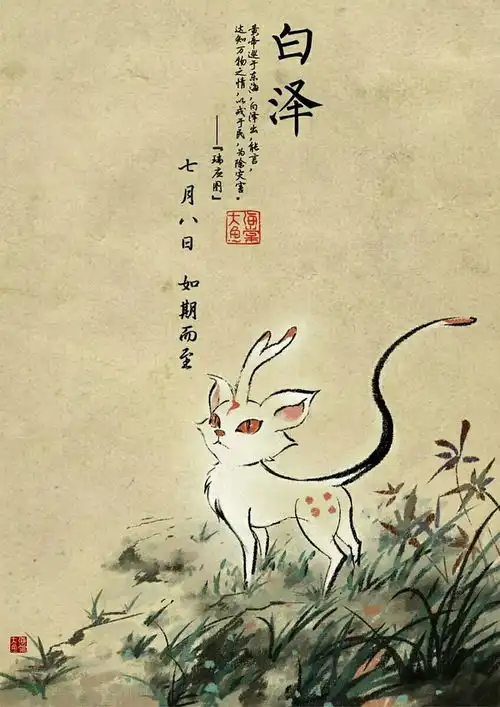 白泽
黄帝巡于东海，白泽出，能言，
达知万物之情，以戒于民，为除灾害。
——『瑞应图』
大鱼
七月八日 如期而至